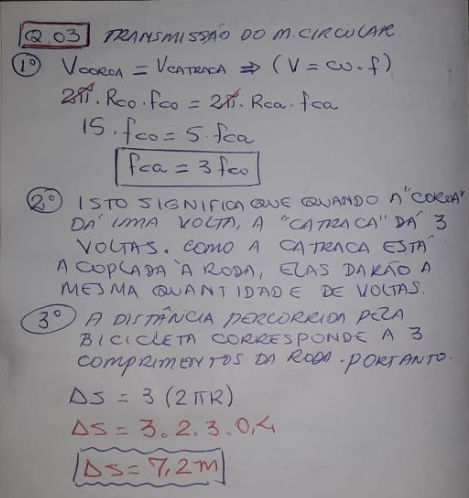 Q.03 TRANSMISSÃO DO M.CIRCULAR.
1º VCOROA = VCATRACA ⇒ (V = ω.f)
2π.Rco.fco = 2π.Rca.fca
15.fco = 5.fca
fca = 3fco
2º ISTO SIGNIFICA QUE QUANDO A "COROA"
DÁ UMA VOLTA, A "CATRACA" DÁ 3
VOLTAS. COMO A CATRACA ESTÁ
ACOPLADA À RODA, ELAS DARÃO A
MESMA QUANTIDADE DE VOLTAS.
3º A DISTÂNCIA PERCORRIDA PELA
BICICLETA CORRESPONDE A 3
COMPRIMENTOS DA RODA. PORTANTO.
ΔS = 3(2πR)
ΔS = 3.2.3.0,4
ΔS = 7,2m